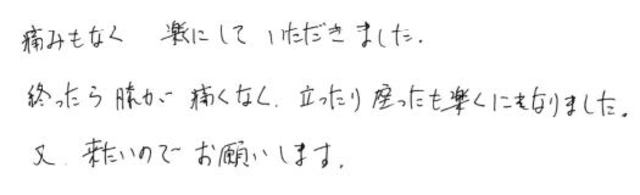 痛みもなく 楽にして いただきました.
終ったら 膝が 痛くなく. 立ったり 座ったも楽くにもなりました。
又. 来たいので お願いします.